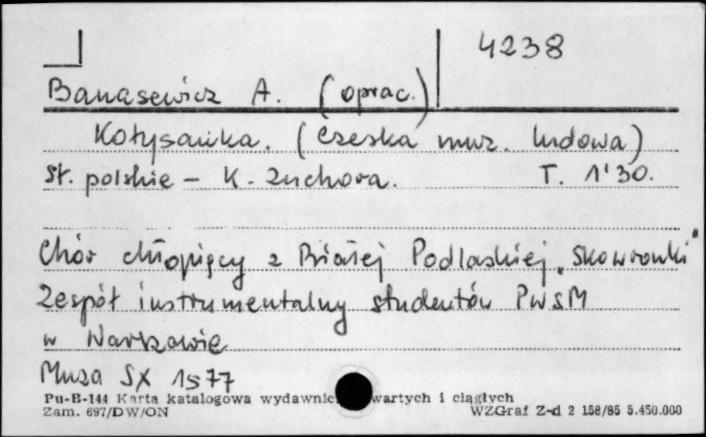 4238
Banasewicz A. (oprac.)
Kołysanka. (czeska muz. ludowa)
sł. polskie – K. Zuchora. T. 1'30.
Chór chłopięcy z Białej Podlaskiej „Skowronki"
Zespół instrumentalny studentów PWSM
w Warszawie
Muza SX 1577
Pu-B-144 Karta katalogowa wydawnic wartych i ciągłych
Zam. 697/DW/ON WZGraf Z-d 2 158/85 5.450.000